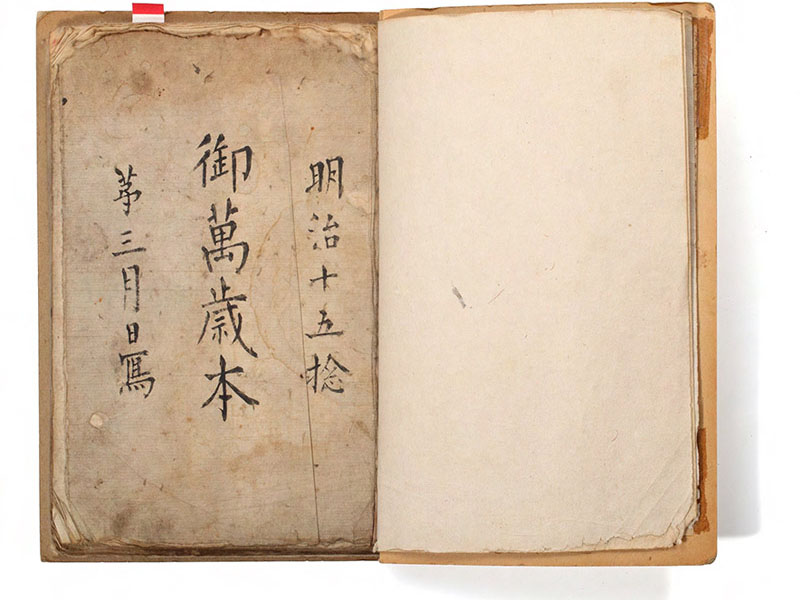 明治十五捻
御萬歳本
第三月日寫